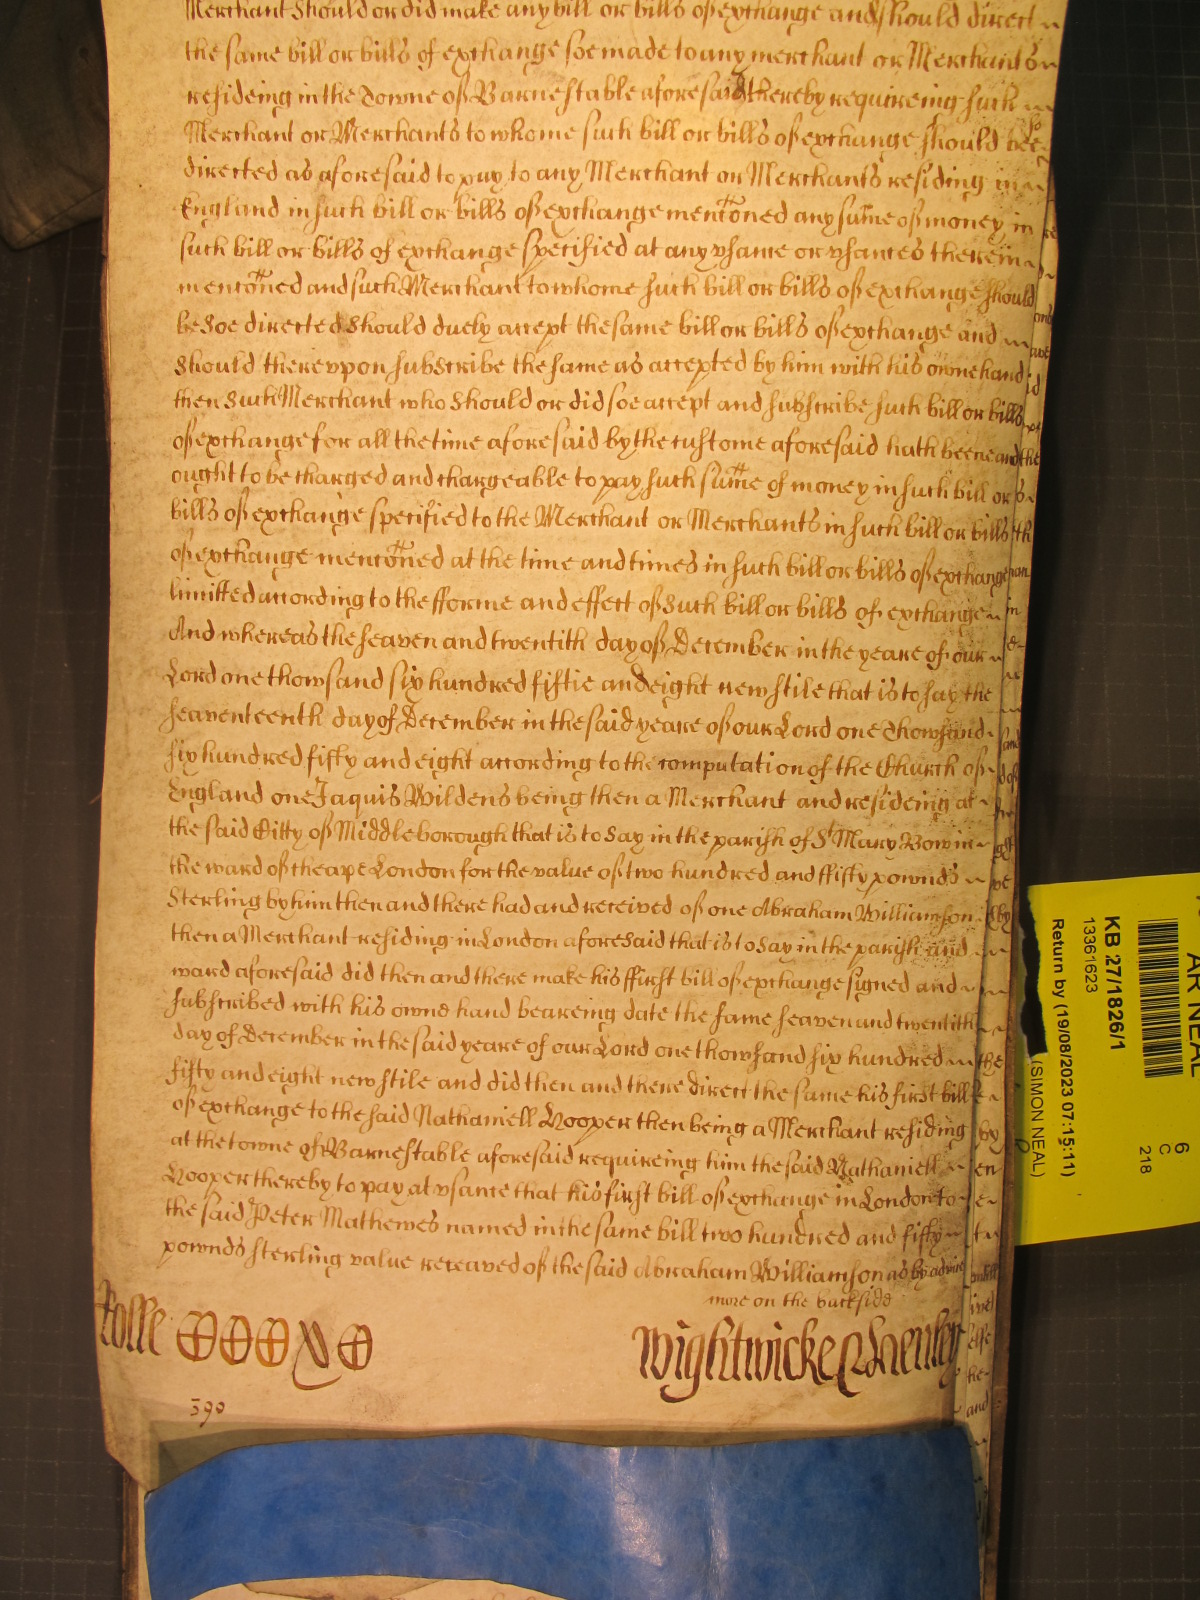 Merchant should or did make any bill or bills of exchange and should direct
the same bill or bills of exchange soe made to any merchant or Merchants
resideing in the Towne of Barnestable aforesaid thereby requireing such
Merchant or Merchants to whome such bill or bills of exchange should bee so
directed as aforesaid to pay to any Merchant or Merchants residing in
England in such bill or bills of exchange mentoned any sume of money in
such bill or bills of exchange specified at any vsance or vsances therein
mentoned and such Merchant to whome such bill or bills of exchange should
be soe directed should duely accept the same bill or bills of exchange and
should therevpon subscribe the same as accepted by him with his owne hand
then such Merchant who should or did soe accept and subscribe such bill or bills
of exchange for all the time aforesaid by the custome aforesaid hath beene and
ought to be charged and chargeable to pay such sume of money in such bill or
bills of exchange specified to the Merchant or Merchants in such bill or bills
of exchange mentoned at the time and times in such bill or bills of exchange
limitted according to the fforme and effect of such bill or bills of exchange
And whereas the seaven and twentith day of December in the yeare of our
Lord one thowsand six hundred fiftie and eight new stile that is to say the
seaventeenth day of December in the said yeare of our Lord one Thowsand
six hundred fifty and eight according to the computation of the Church of
England one Jaquis Wildens being then a Merchant and resideing at
the said Citty of Middleborough that is to say in the parish of St Mary Bow in
the ward of Cheape London for the value of two hundred and ffifty pownds
Sterling by him then and there had and received of one Abraham Williamson
then a Merchant residing in London aforesaid that is to say in the parish and
ward aforesaid did then and there make his ffirst bill of exchange signed and
subscribed with his owne hand beareing date the same seaven and twentith
day of December in the said yeare of our Lord one thowsand six hundred
fifty and eight new stile and did then and there direct the same his first bill
of exchange to the said Nathaniell Hooper then being a Merchant residing
at the towne of Barnestable aforesaid requireing him the said Nathaniell
Hooper thereby to pay at vsance that his first bill of exchange in London to
the said Peter Mathewes named in the same bill two hundred and fifty
pownds sterling value receaved of the said Abraham Williamson as by advice
more on the backside
Rolle CCCXC
Wightwicke & Henley
390
KB 27/1826/1
13361623
Return by (19/08/2023 07:15:11)
(SIMON NEAL)
AR NEAL
6
C
218